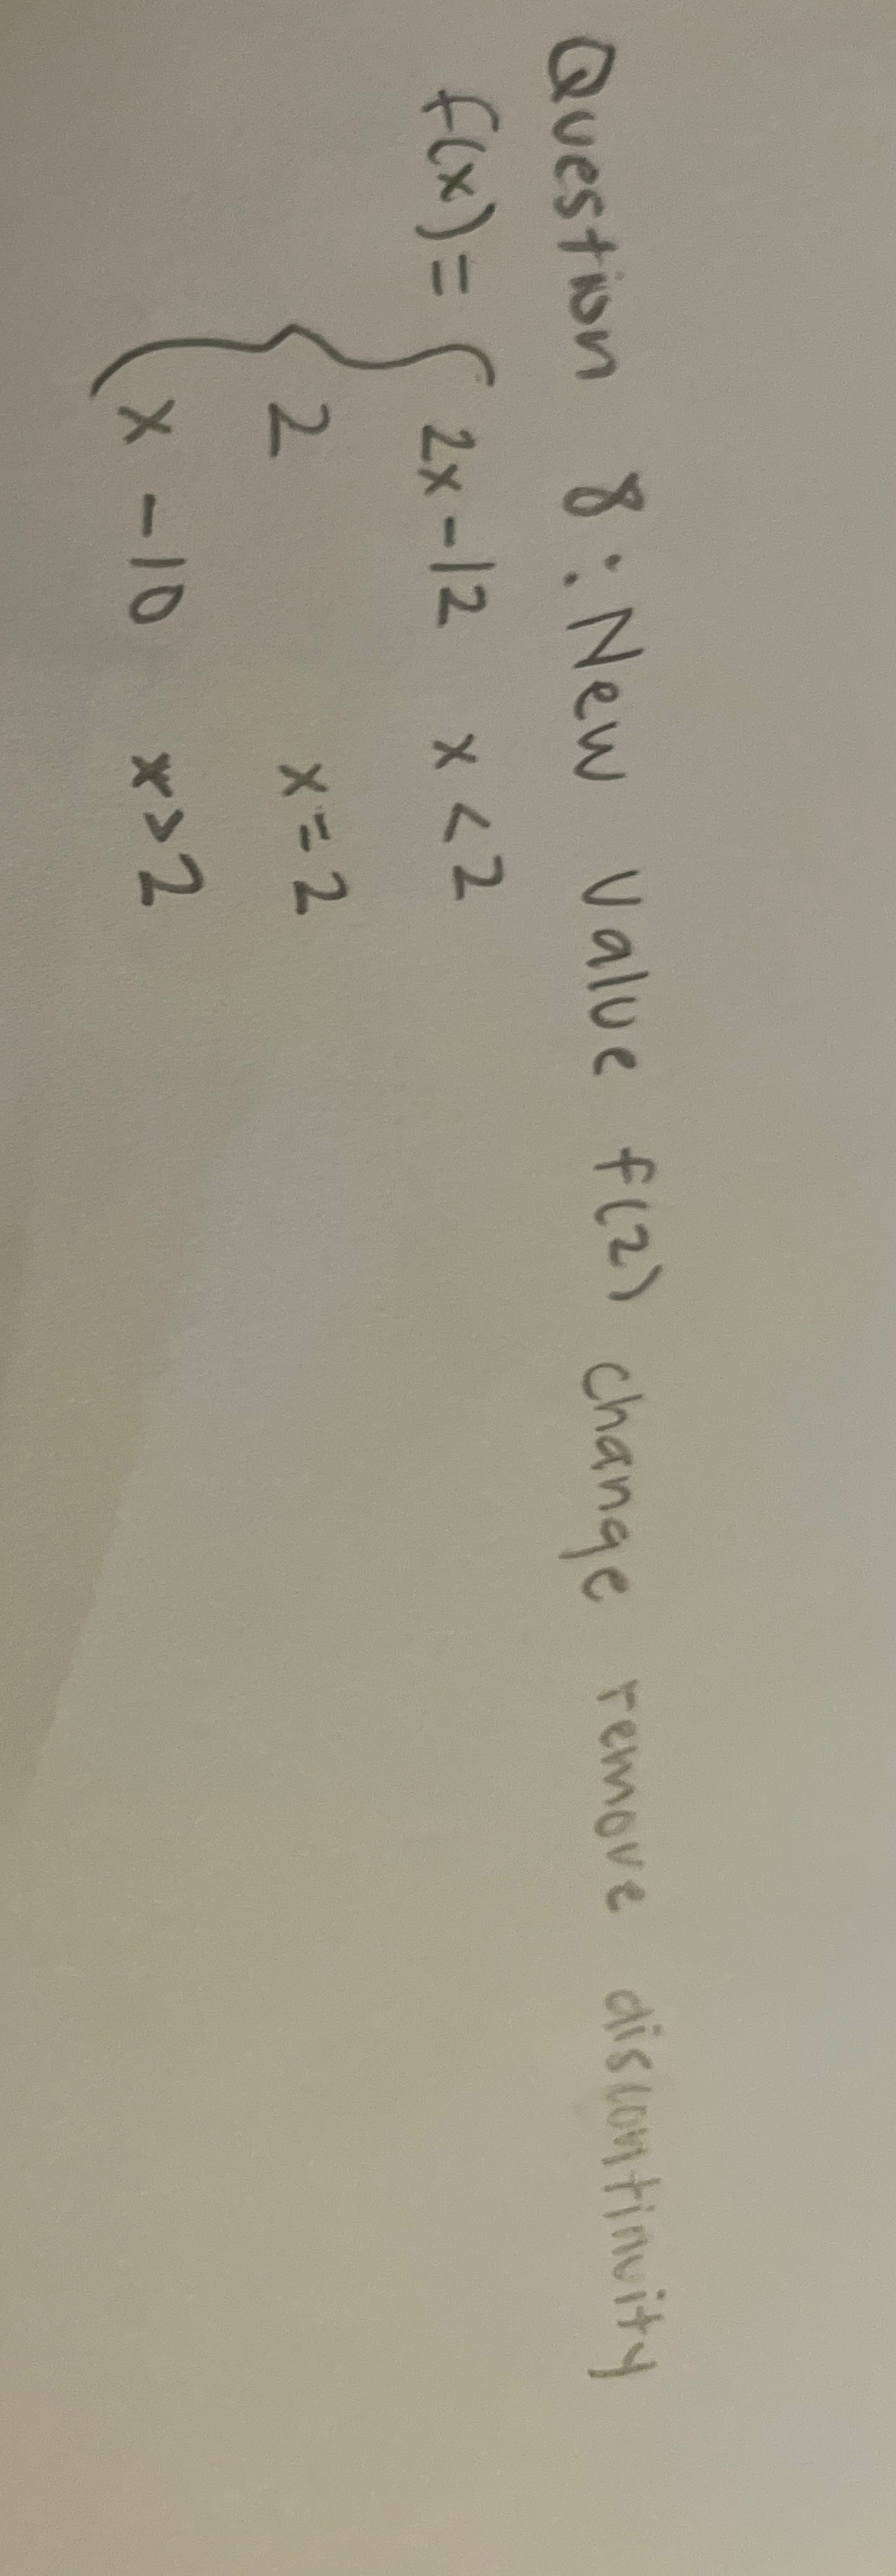 Question 8: New value f(2) change remove discontinuity
f(x) = { 2x - 12 x < 2
2 x = 2
x - 10 x > 2